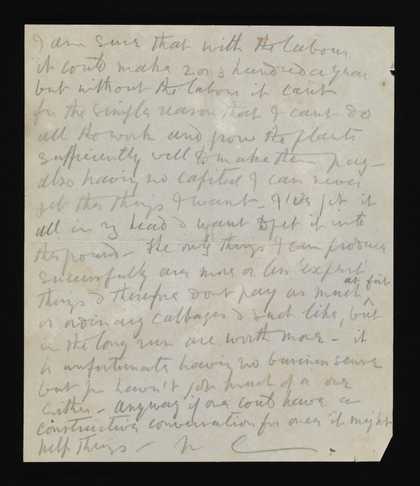 I am sure that with the labour
it could make 2 or 3 hundred a year
but without the labour it cant
for the simple reason that I cant do
all the work and grow the plants
sufficiently well to make them pay -
also having no capital I can never
get the things I want - I've got it
all in my head & want to get it into
the ground - The only things I can produce
successfully are more or less 'expert'
things & therefore dont pay as much at first
as ordinary cabbages & such like, but
in the long run are worth more - it
is unfortunate having no business sense
but you haven't got much of a one
either - anyway if one could have a
constructive conversation for once it might
help things -